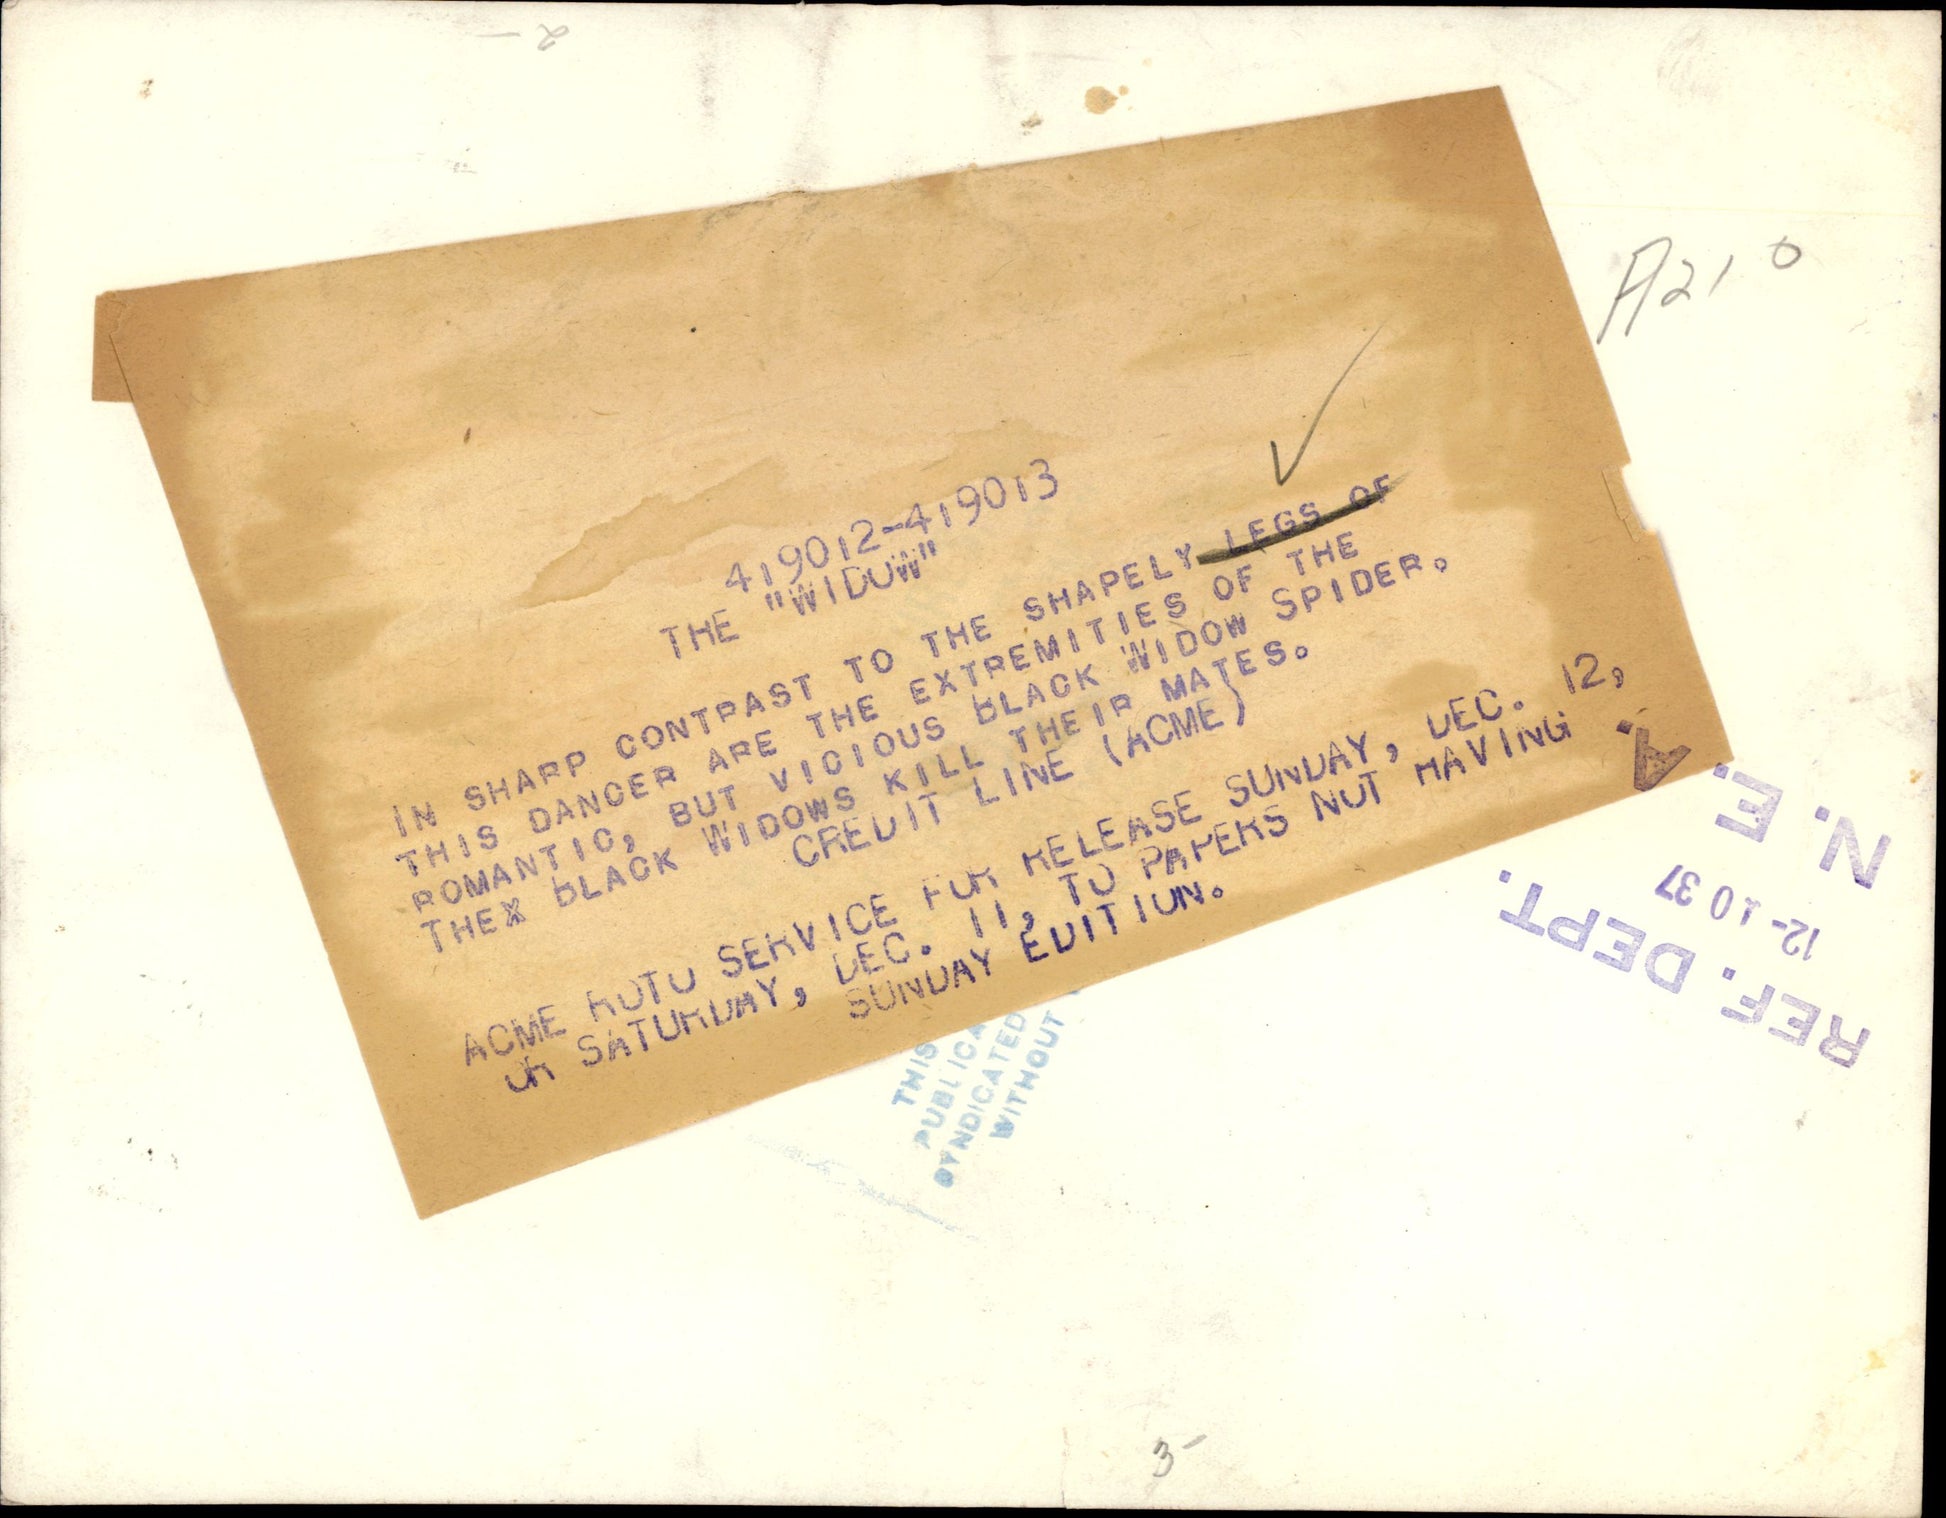 2-
A210
419012-419013
THE "WIDOW"
IN SHARP CONTRAST TO THE SHAPELY LEGS OF
THIS DANCER ARE THE EXTREMITIES OF THE
ROMANTIC, BUT VICIOUS BLACK WIDOW SPIDER.
THEX BLACK WIDOWS KILL THEIR MATES.
CREDIT LINE (ACME)
ACME ROTO SERVICE FOR RELEASE SUNDAY, DEC. 12,
OR SATURDAY, DEC. 11, TO PAPERS NOT HAVING
SUNDAY EDITION.
THIS
PUBLICA
SYNDICATED
WITHOUT
REF. DEPT.
12-10 37
N. E. A.
3-